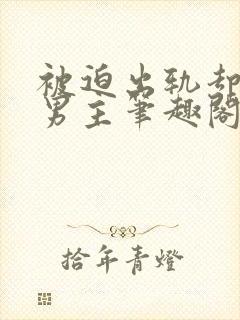 被迫出轨却
男主笔趣阁
拾年青燈